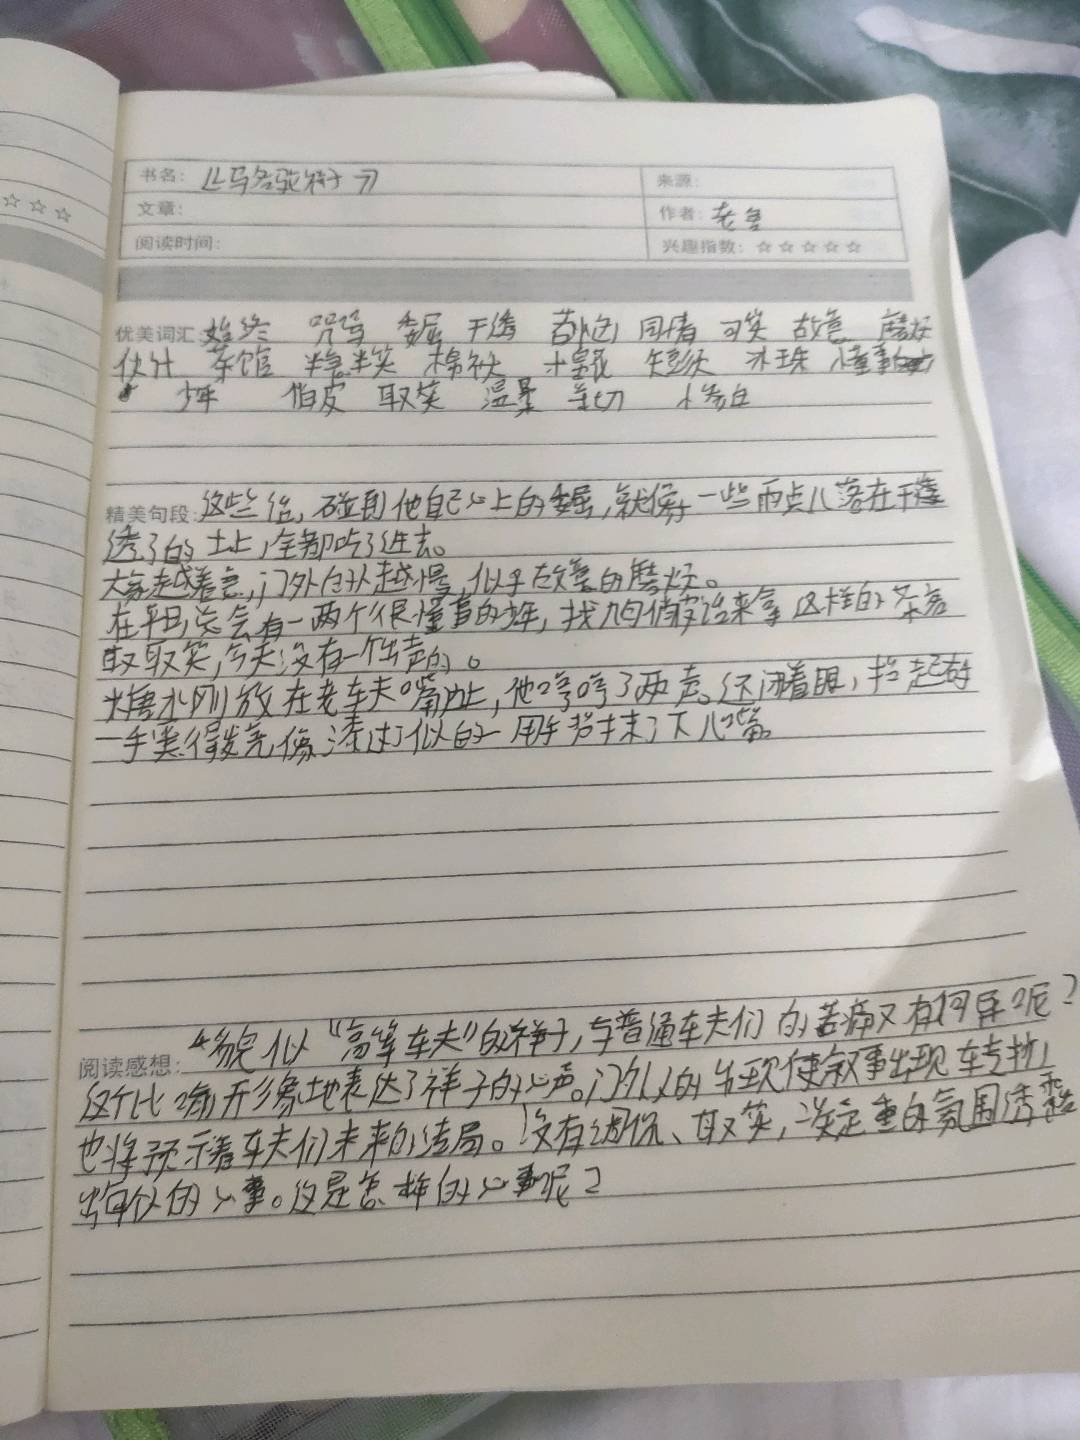 书名: 《骆驼祥子》
来源:
文章:
作者: 老舍
阅读时间:
兴趣指数: ☆☆☆☆☆
优美词汇: 始终 咒骂 委屈 干透 苦恼 同情 可笑 故意 磨烦
伙计 茶馆 半急半笑 棉袄 短须 冰珠 懂事
少年 俏皮 取笑 温暖 亲切 惨白
精美句段: 这些话,碰到他自己心上的委屈,就像一些雨点儿落在干
透了的土上,全都吃了进去。
大家越着急,门外的人越慢,似乎故意的磨烦。
在平日,总会有一两个很懂事的少年,找几句俏皮话来拿这样的茶客
取取笑,今天没有一个出声的。
糖水刚放在老车夫嘴边,他哼哼了两声。还闭着眼,抬起右
手—手黑得发亮像漆过了似的—用手背抹了下儿嘴。
阅读感想: 貌似“高等车夫”的祥子,与普通车夫们的苦痛又有何异呢?
这个比喻形象地表达了祥子的心声。门外人的出现使叙事出现转折,
也将预示着车夫们未来的结局。没有调侃、取笑,凝重的氛围透露
出每个人的心事。这是怎样的心事呢?